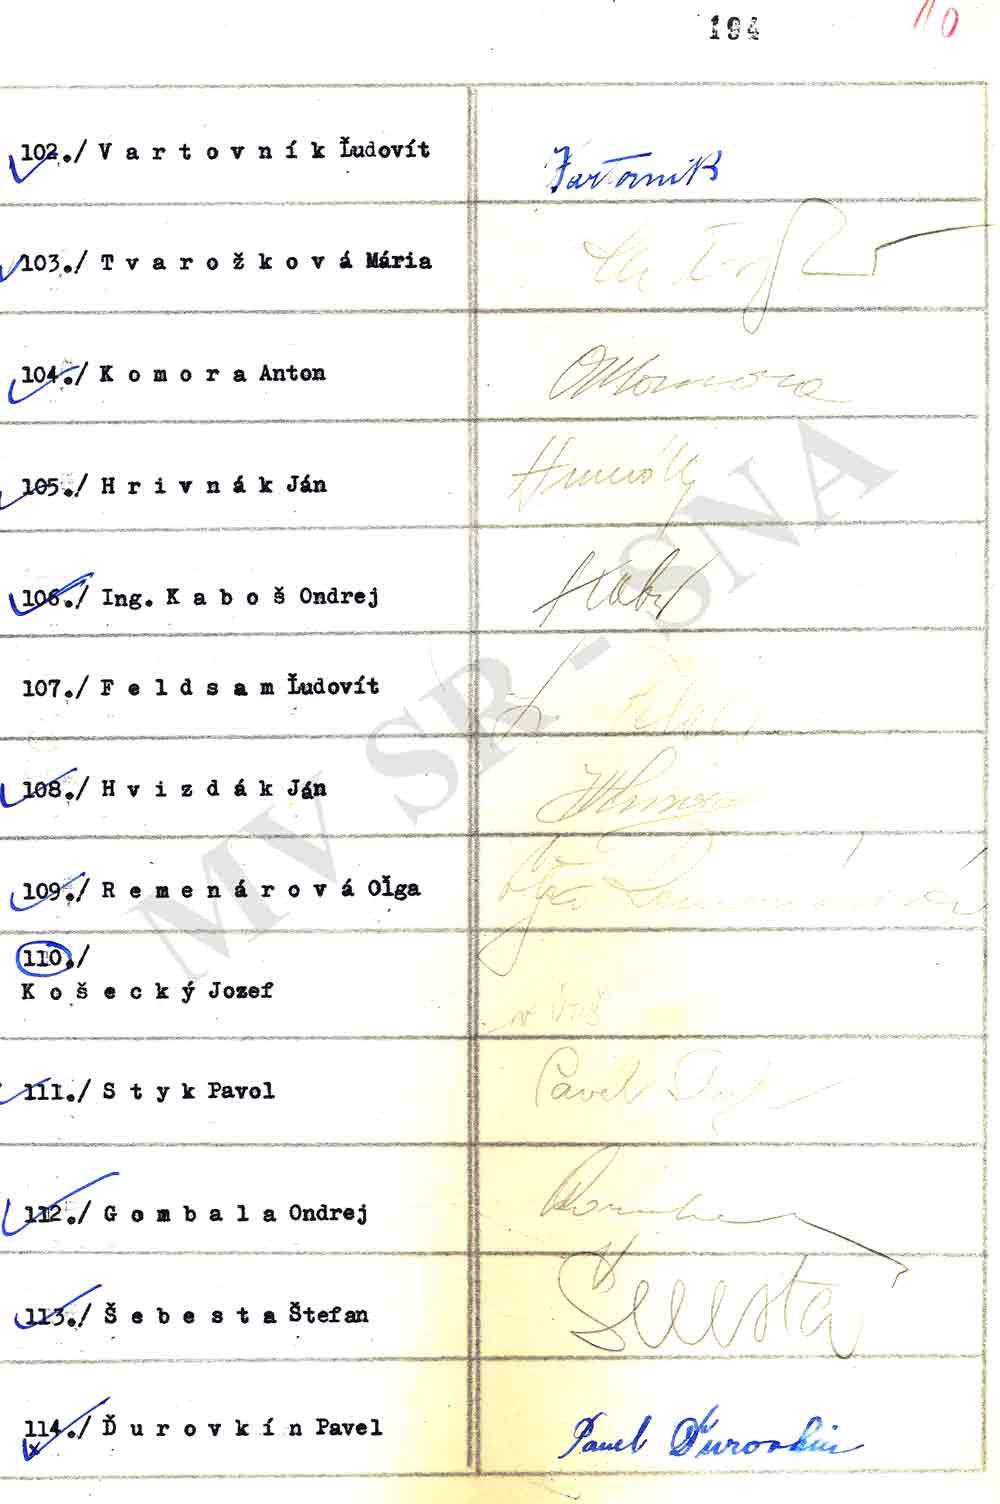 194
10
102./ V a r t o v n í k Ľudovít
Vartovník
103./ T v a r o ž k o v á Mária
104./ K o m o r a Anton
AKomora
105./ H r i v n á k Ján
Hrivnák
106./ Ing. K a b o š Ondrej
Kaboš
107./ F e l d s a m Ľudovít
108./ H v i z d á k Ján
109./ R e m e n á r o v á Oľga
Oľga Remenárová
110./
K o š e c k ý Jozef
111./ S t y k Pavol
Pavel Styk
112./ G o m b a l a Ondrej
113./ Š e b e s t a Štefan
Šebesta
114./ Ď u r o v k í n Pavel
Pavel Ďurovkin
MV SR - SNA